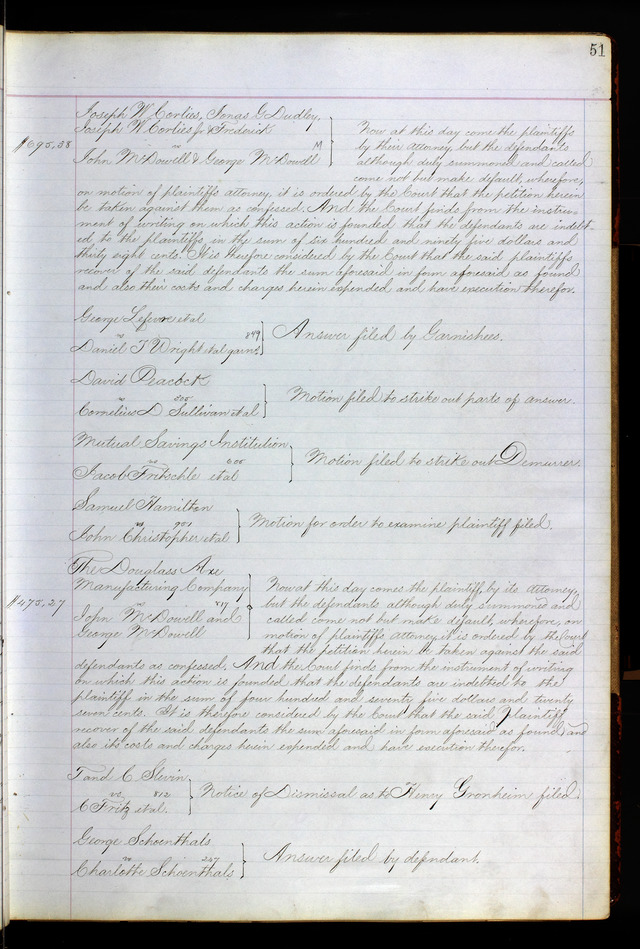 51
Joseph W. Corlies, Jonas G Dudley,
Joseph W. Corlies Jr & Frederick
$695,38
vs
John McDowell & George McDowell
Now at this day come the plaintiffs
by their attorney, but the defendants
although duly summoned and called
come not but make default, wherefore,
on motion of plaintiffs attorney, it is ordered by the Court that the petition herein
be taken against them as confessed. And the Court finds from the instru-
ment of writing on which this action is founded that the defendants are indebt-
ed to the plaintiffs, in the sum of six hundred and ninety five dollars and
thirty eight cents. It is therefore considered by the Court that the said plaintiffs
recover of the said defendants the sum aforesaid in form aforesaid as found
and also their costs and charges herein expended and have execution therefor.
George Lefevre etal
vs 899
Daniel T Wright etal garns.
Answer filed by Garnishees.
David Peacock
vs
Cornelius D Sullivan etal
Motion filed to strike out parts of answer.
Mutual Savings Institution
vs
Jacob Fritschle etal
Motion filed to strike out Demurrer.
Samuel Hamilton
vs 901
John Christopher etal
Motion for order to examine plaintiff filed.
The Douglass Axe
Manufacturing Company
$475,27
vs
John McDowell and
George McDowell
Now at this day comes the plaintiff, by its attorney,
but the defendants although duly summoned and
called come not but make default, wherefore, on
motion of plaintiffs attorney it is ordered by the Court
that the petition herein be taken against the said
defendants as confessed, And the Court finds from the instrument of writing
on which this action is founded that the defendants are indebted to the
plaintiff in the sum of four hundred and seventy five dollars and twenty
seven cents. It is therefore considered by the Court that the said plaintiff
recover of the said defendants the sum aforesaid in form aforesaid as found and
also its costs and charges herein expended and have execution therefor.
T and C Slevin
vs. 812
C Fritz etal.
Notice of Dismissal as to Henry Gronheim filed.
George Schoenthals
vs 257
Charlotte Schoenthals
Answer filed by defendant.